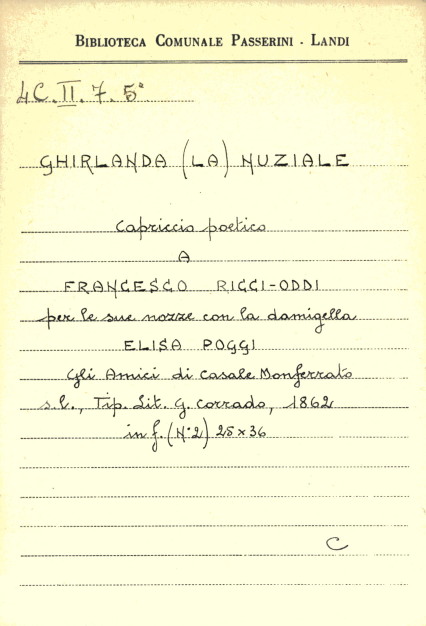 BIBLIOTECA COMUNALE PASSERINI - LANDI
4C.II.7.5°
GHIRLANDA (LA) NUZIALE
Capriccio poetico
A
FRANCESCO RICCI-ODDI
per le sue nozze con la damigella
ELISA POGGI
Gli Amici di Casale Monferrato
s.l., Tip. Lit. G. Corrado, 1862
in f. (N°2) 25x36
C